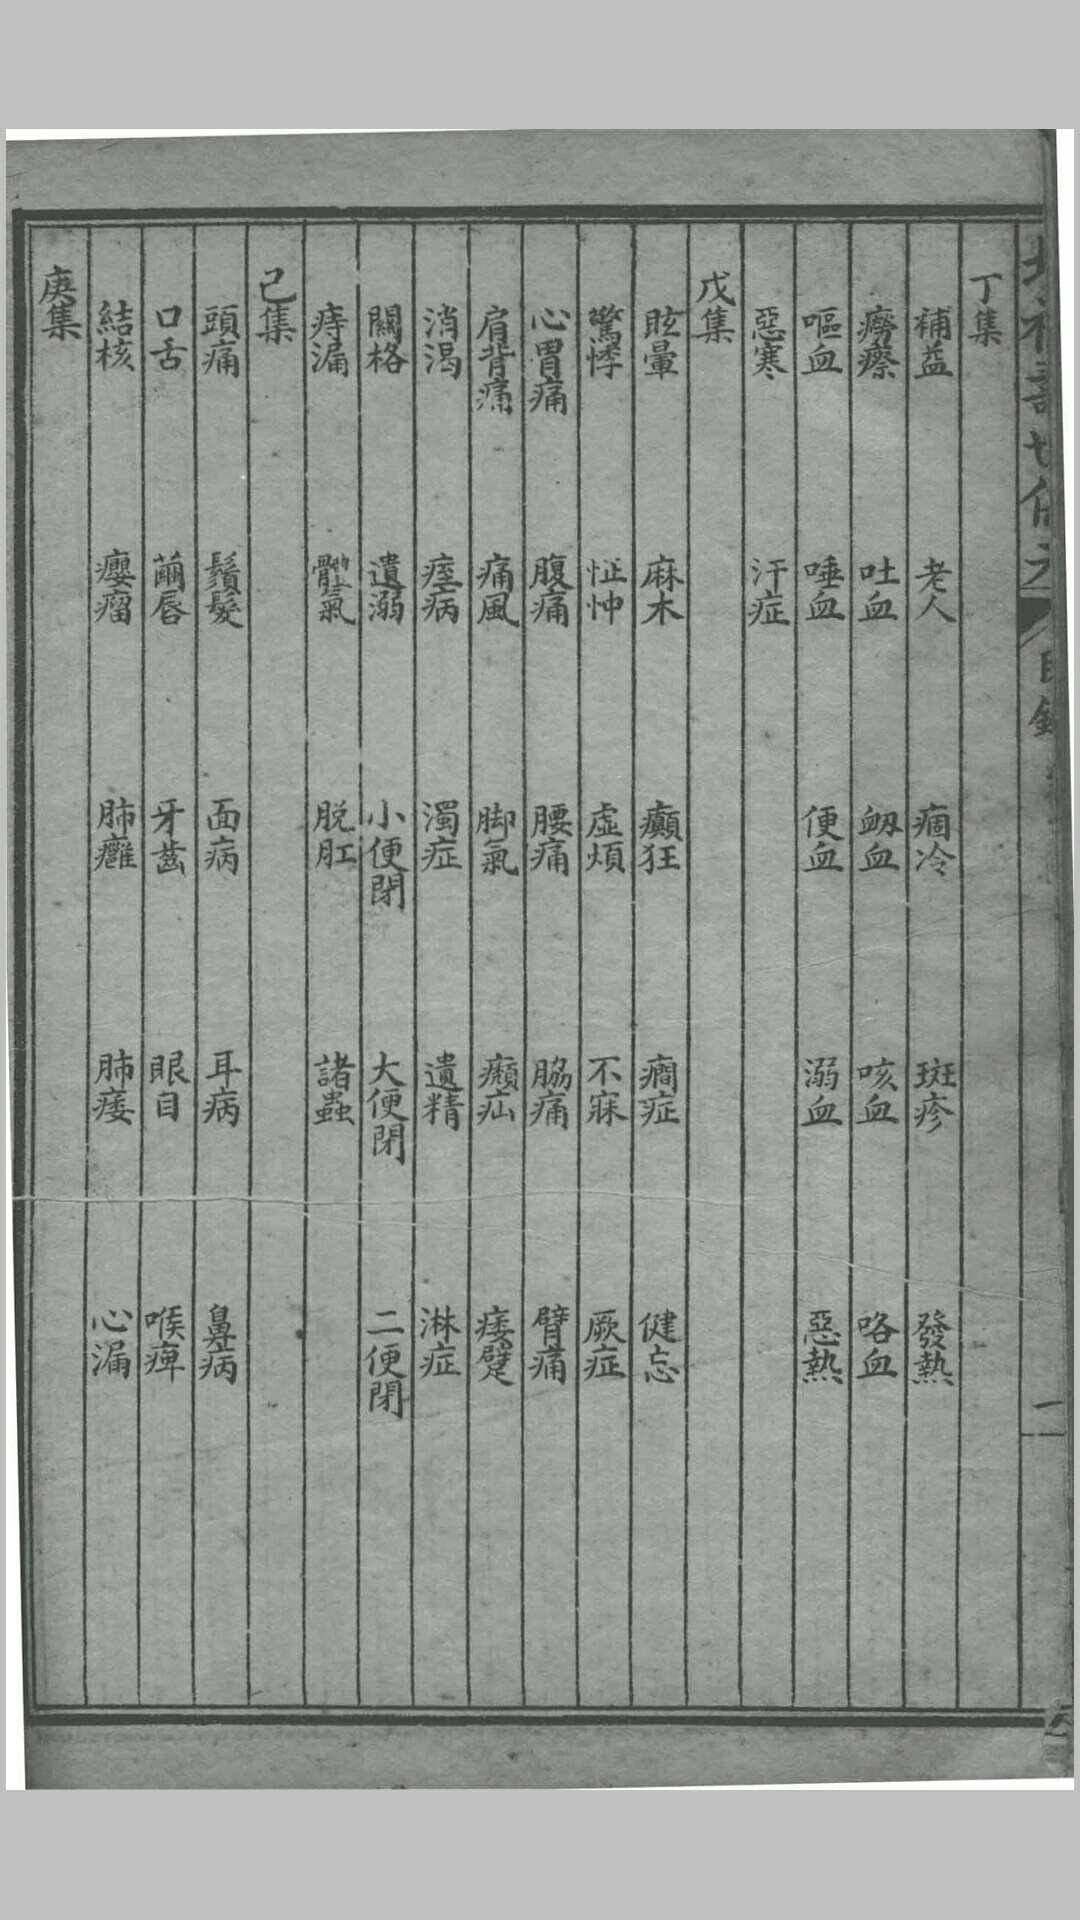 丁集
補益 老人 痼冷 斑疹 發熱
癆瘵 吐血 衂血 咳血 咯血
嘔血 唾血 便血 溺血 惡熱
惡寒 汗症
戊集
眩暈 麻木 癲狂 癇症 健忘
驚悸 怔忡 虛煩 不寐 厥症
心胃痛 腹痛 腰痛 脇痛 臂痛
肩背痛 痛風 脚氣 㿗疝 痿躄
消渴 痙病 濁症 遺精 淋症
關格 遺溺 小便閉 大便閉 二便閉
痔漏 體氣 脱肛 諸蟲
己集
頭痛 鬚髮 面病 耳病 鼻病
口舌 繭唇 牙齒 眼目 喉痺
結核 癭瘤 肺癰 肺痿 心漏
庚集